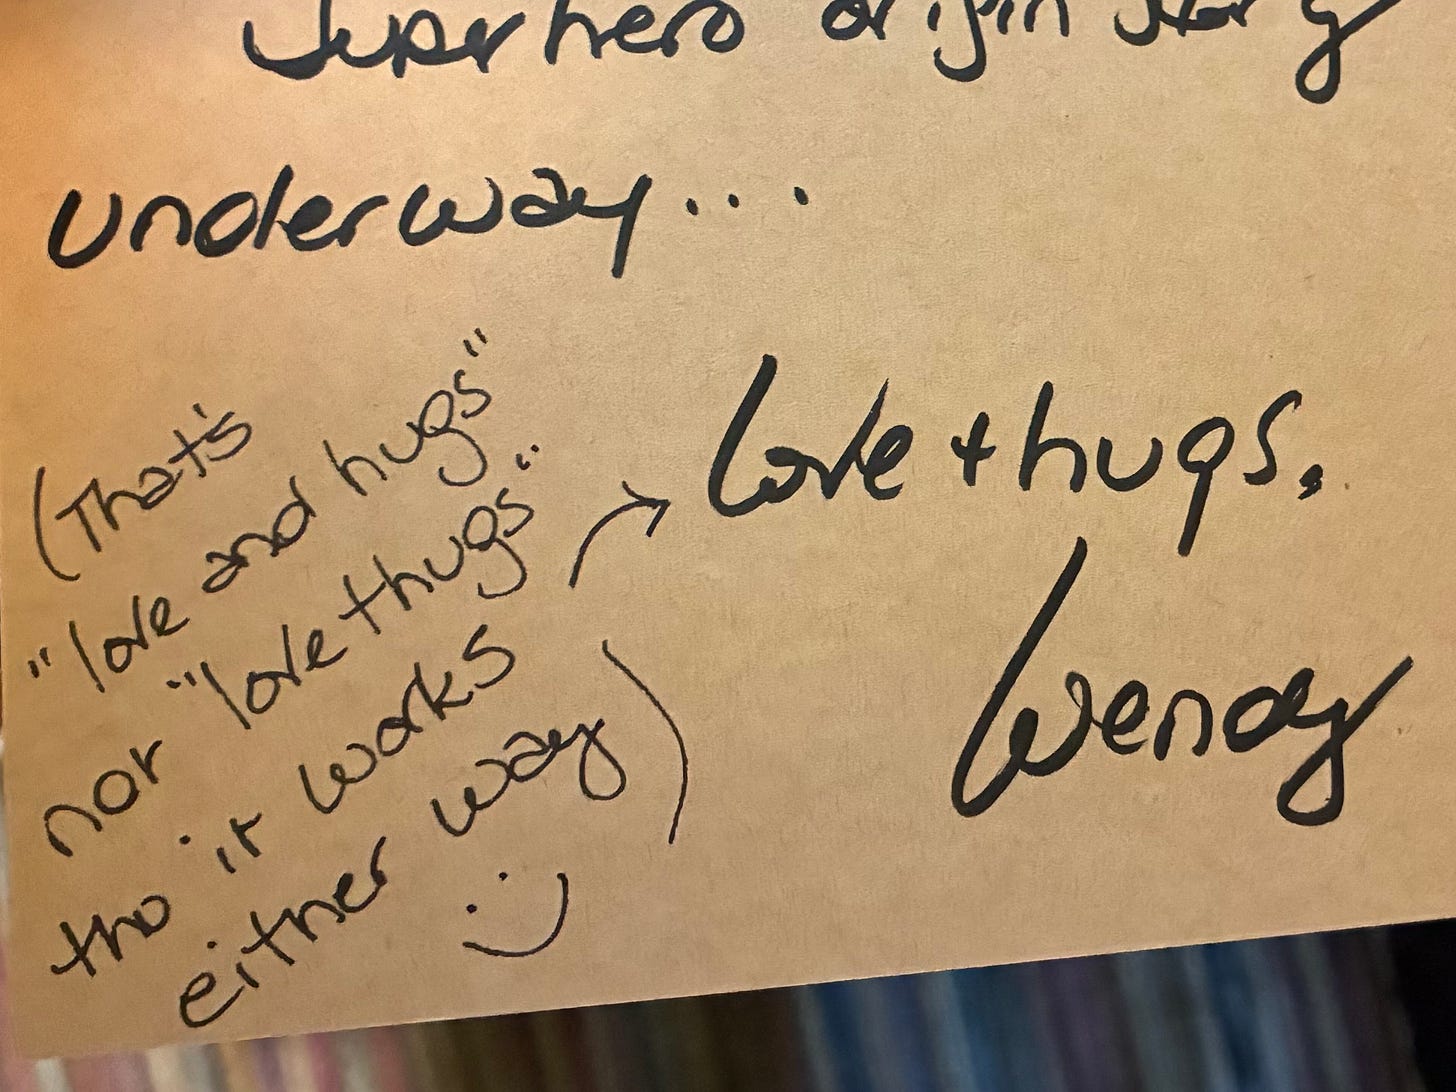 Superhero origin story
underway...
love + hugs,
Wendy
(That's
"love and hugs"
nor "love thugs"
tho it works
either way)
:)